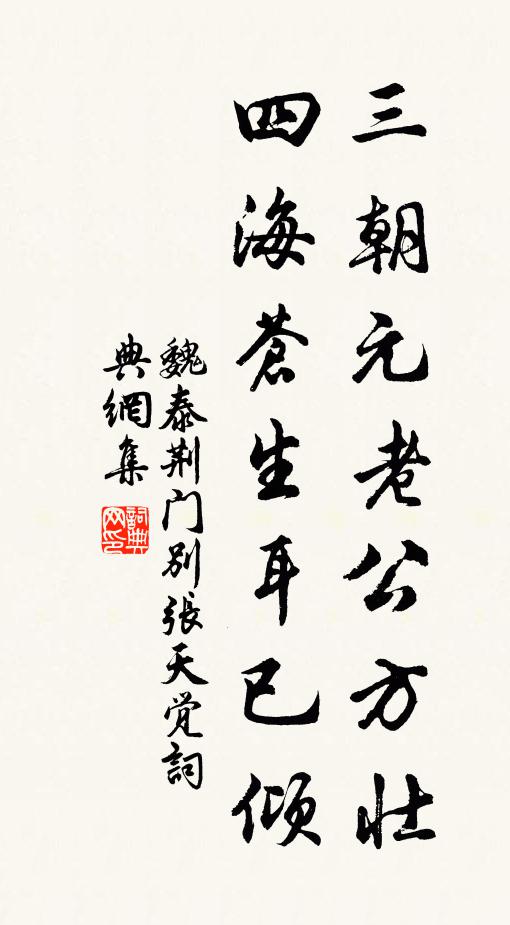 三朝元老公方壮
四海蒼生耳已傾
魏泰荆门别張天觉詞
典網集
詞典网印